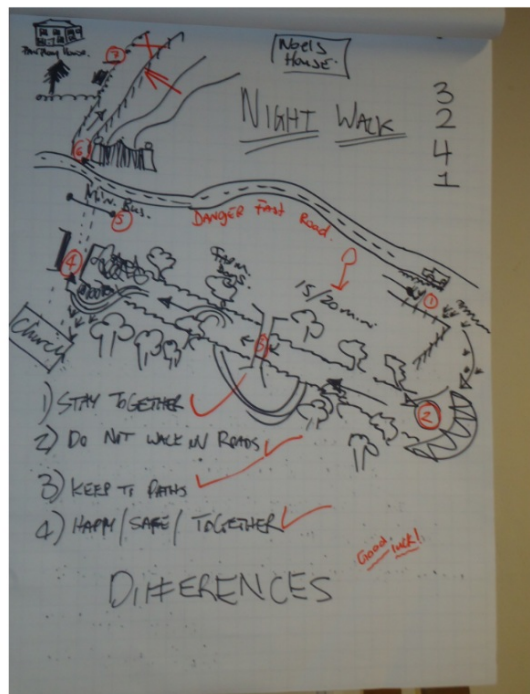 House.
7
NOELS
HOUSE.
NIGHT WALK
3
2
4
1
6
Mini Bus.
5
DANGER FAST ROAD.
4
15/20 min
1
3
Church
2
1) STAY TOGETHER
2) DO NOT WALK IN ROADS
3) KEEP TO PATHS
4) HAPPY / SAFE / TOGETHER
Good luck!
DIFFERENCES